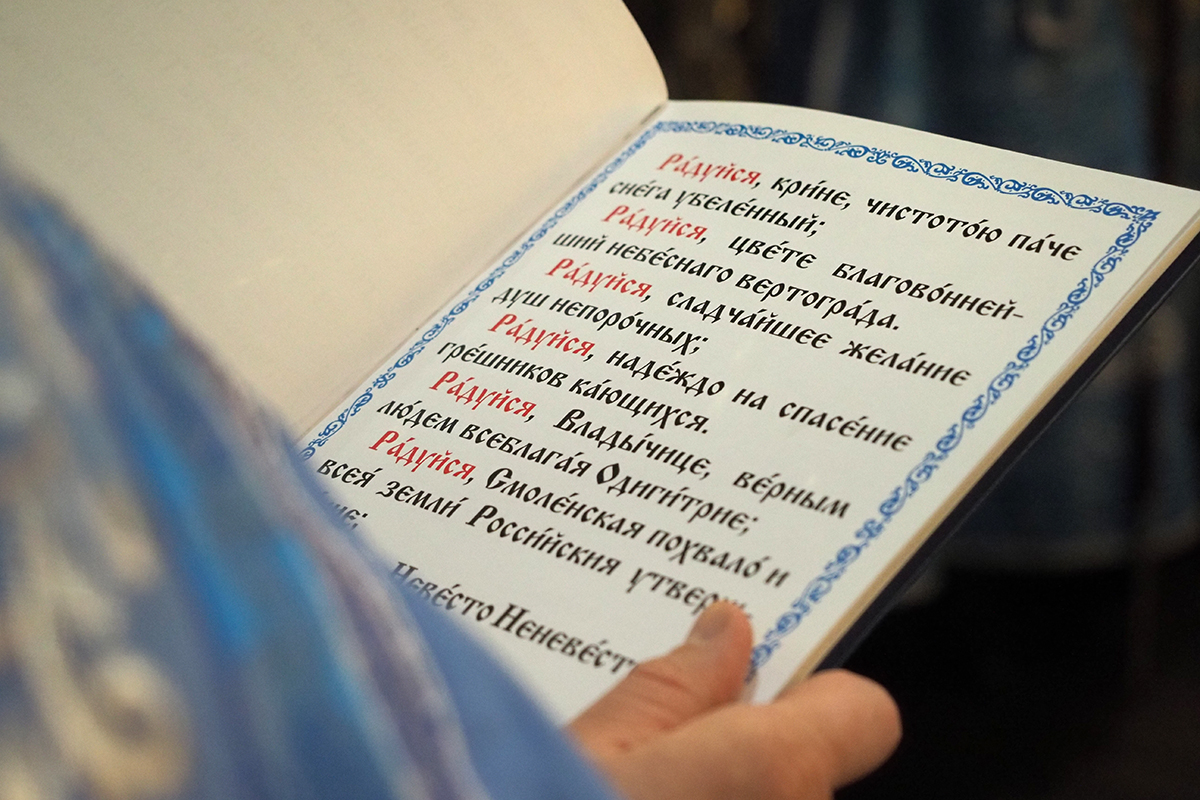 Ра́дуйся, кри́не, чистото́ю па́че
сне́га убеле́нный;
Ра́дуйся, цве́те благово́нней-
ший небе́снаго вертогра́да.
Ра́дуйся, сладча́йшее жела́ние
душ непоро́чных;
Ра́дуйся, наде́ждо на спасе́ние
гре́шников ка́ющихся.
Ра́дуйся, Влады́чице, ве́рным
лю́дем всеблага́я Одиги́трие;
Ра́дуйся, Смоле́нская похвало́ и
всея́ земли́ Росси́йския
Неве́сто